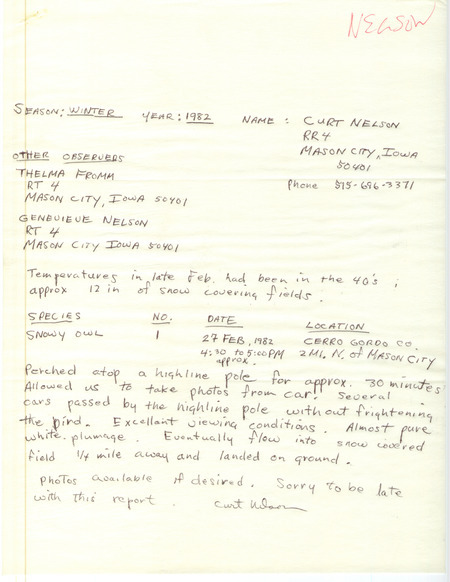 NELSON
SEASON: WINTER YEAR: 1982 NAME: CURT NELSON
RR 4
MASON CITY, IOWA
50401
Phone 515-696-3371
OTHER OBSERVERS
THELMA FROMM
RT 4
MASON CITY, IOWA 50401
GENEVIEVE NELSON
RT 4
MASON CITY IOWA 50401
Temperatures in late Feb. had been in the 40's;
approx 12 in of snow covering fields.
SPECIES NO. DATE LOCATION
SNOWY OWL 1 27 FEB, 1982 CERRO GORDO CO.
4:30 to 5:00 PM 2 MI. N. of MASON CITY
approx.
Perched atop a highline pole for approx. 30 minutes
Allowed us to take photos from car. Several
cars passed by the highline pole without frightening
the bird. Excellant viewing conditions. Almost pure
white plumage. Eventually flew into snow covered
field 1/4 mile away and landed on ground.
Photos available if desired. Sorry to be late
with this report. Curt Nelson